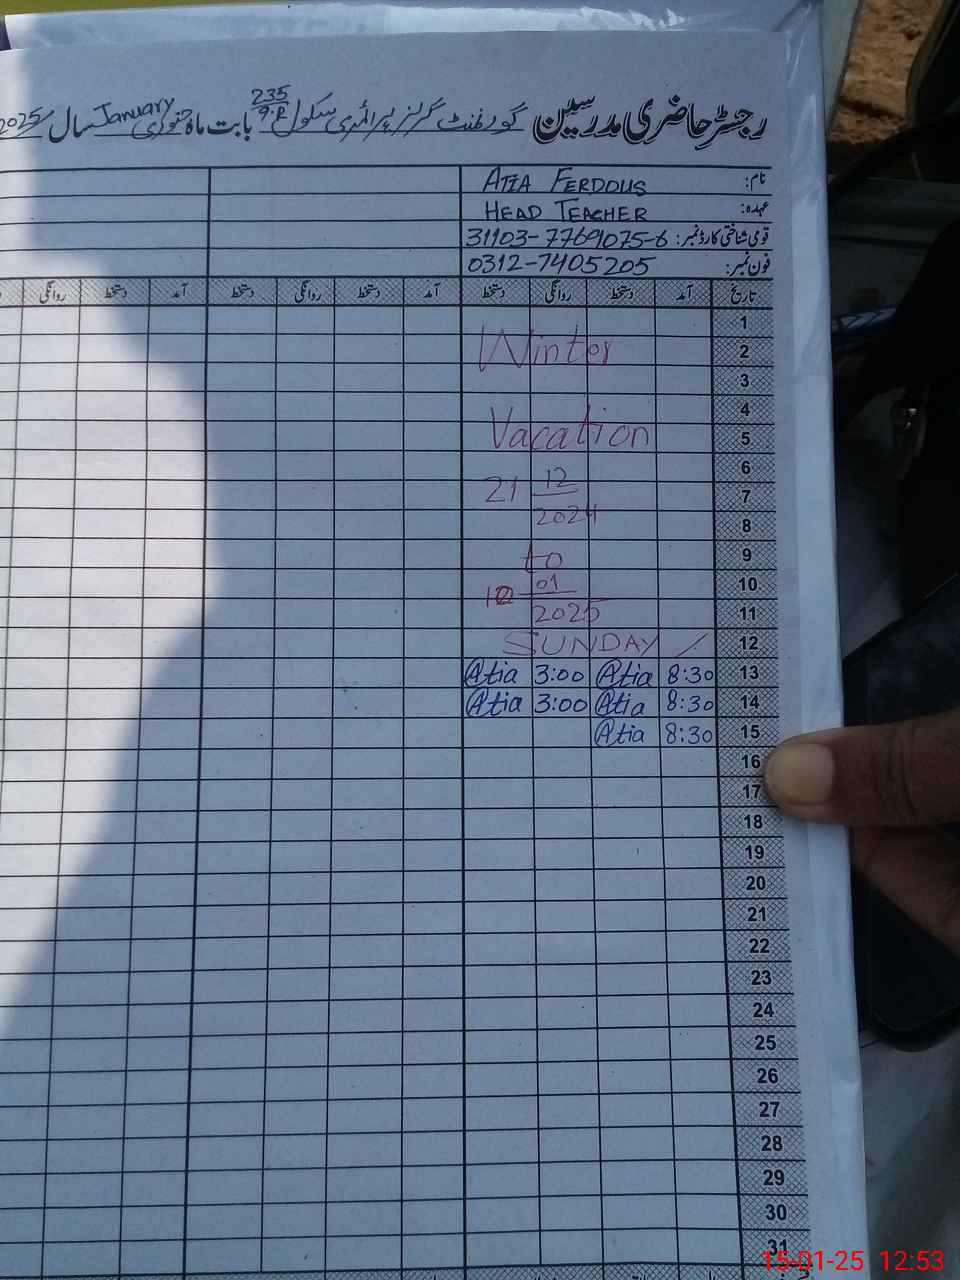 رجسٹر حاضری مدرسین گورنمنٹ گرلز پرائمری سکول 235/9.R بابت ماہ جنوری January سال 2025
نام: ATIA FERDOUS
عہدہ: HEAD TEACHER
قومی شناختی کارڈ نمبر: 31103-7769075-6
فون نمبر: 0312-7405205
تاریخ آمد دستخط روانگی دستخط آمد دستخط روانگی دستخط آمد دستخط روانگی
1
2 Winter
3
4
5 Vacation
6
7 21 12
8 2024
9 to
10 01
11 2025
12 SUNDAY
13 8:30 Atia 3:00 Atia
14 8:30 Atia 3:00 Atia
15 8:30 Atia
16
17
18
19
20
21
22
23
24
25
26
27
28
29
30
31
15-01-25 12:53